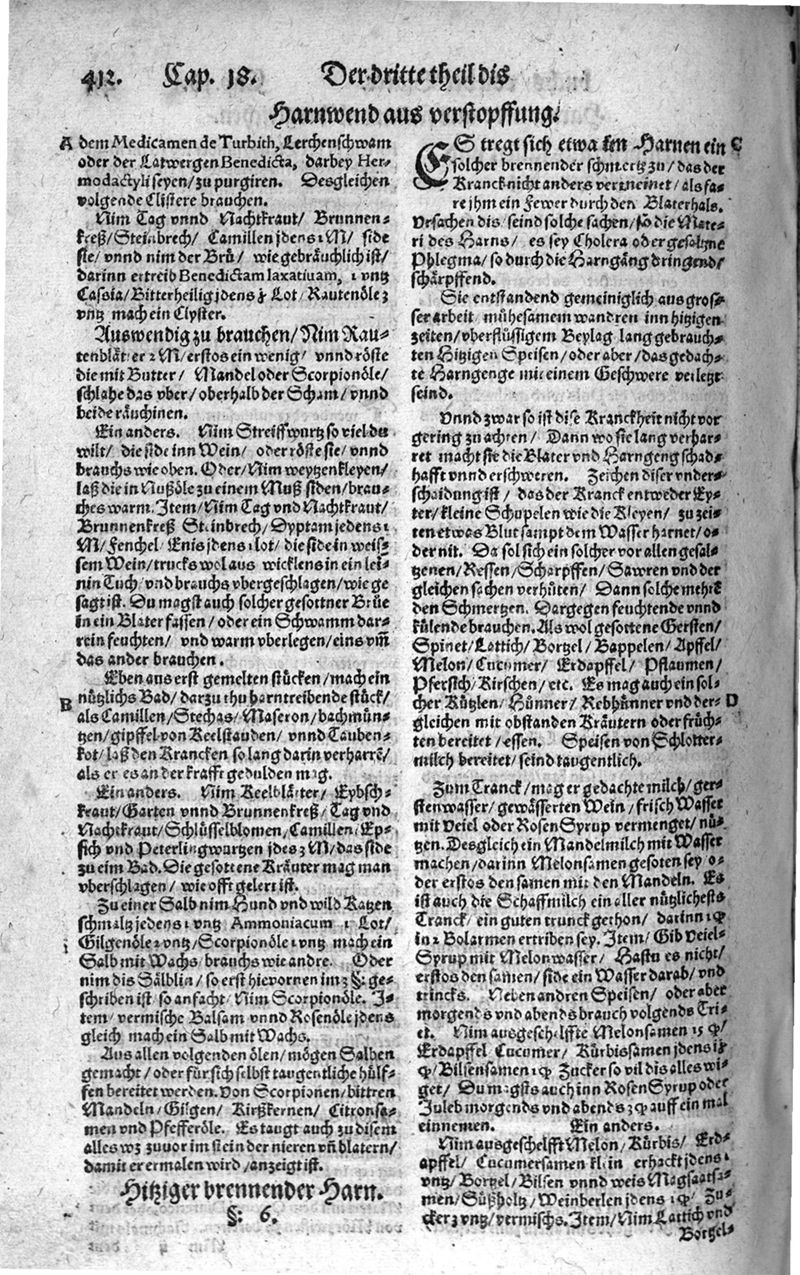 412. Cap. 18. Der dritte theil dis
Harnwend aus verstopffung.
A dem Medicamen de Turbith, Lerchenschwam
oder der Latwergen Benedicta, darbey Her-
modactyli seyen/ zu purgiren. Desgleichen
volgende Clistere brauchen.
Nim Tag vnnd Nachtkraut/ Brunnen-
kreß/ Steinbrech/ Camillen jdens 1 M/ side
sie/ vnnd nim der Brü/ wie gebräuchlich ist/
darinn ertreib Benedictam laxatiuam, 1 vntz
Cassia/ Bitterheilig jdens Lot/ Rautenöle 3
vntz mach ein Clyster.
Auswendig zu brauchen/ Nim Rau-
tenblätter 2 M/ erstos ein wenig/ vnnd röste
die mit Butter/ Mandel oder Scorpionöle/
schlahe das vber/ oberhalb der Scham/ vnnd
beide räuchinen.
Ein anders. Nim Streiffwurtz so viel du
wilt/ die side inn Wein/ oder röste sie/ vnnd
brauchs wie oben. Oder/ Nim weytzenkleyen/
laß die in Nußöle zu einem Muß siden/ brau-
ches warm. Item/ Nim Tag vnd Nachtkraut/
Brunnenkreß Steinbrech/ Dyptam jedens 1
M/ Fenchel/ Enis jdens 1 lot/ die side in weis-
sem Wein/ trucks wol aus wicklens in ein lei-
nin Tuch/ vnd brauchs vbergeschlagen/ wie ge
sagt ist. Du magst auch solcher gesottner Brüe
in ein Blater fassen/ oder ein Schwamm dar-
rein feuchten/ vnd warm vberlegen/ eins vm̄
das ander brauchen.
Eben aus erst gemelten stücken/ mach ein
B nützlichs Bad/ darzu thu harntreibende stück/
als Camillen/ Stechas/ Maseron/ bachmün-
tzen/ gipffel von Keelstauden/ vnnd Tauben-
kot/ laß den Krancken so lang darin verharrē/
als er es an der krafft gedulden mag.
Ein anders. Nim Keelblätter/ Eybsch-
kraut/ Garten vnnd Brunnenkreß/ Tag vnd
Nachtkraut/ Schlüsselblomen/ Camillen/ Ep-
sich vnd Peterlingwurtzen jdes 3 M/ das side
zu eim Bad. Die gesottene Kräuter mag man
vberschlagen/ wie offt gelert ist.
Zu einer Salb nim Hund vnd wild Katzen
schmaltz jedens 1 vntz Ammoniacum 1 Lot/
Gilgenöle 2 vntz/ Scorpionöle 1 vntz mach ein
Salb mit Wachs/ brauchs wie andre. Oder
nim dis Sälblin/ so erst hievornen im 3 §: ge-
schriben ist/ so anfacht/ Nim Scorpionöle. J-
tem/ vermische Balsam vnnd Rosenöle jdens
gleich/ mach ein Salb mit Wachs.
Aus allen volgenden ölen/ mögen Salben
gemacht/ oder für sich selbst taugentliche hülf-
fen bereitet werden. Von Scorpionen/ bittren
Mandeln/ Gilgen/ Kirßkernen/ Citronsa-
men vnd Pfefferöle. Es taugt auch zu disem
alles wz zuvor im stein der nieren vn̄ blatern/
damit er ermalen wird/ anzeigt ist.
Hitziger brennender Harn.
§: 6.
ES tregt sich etwa im Harnen ein C
solcher brennender schmertz zu/ das der
Kranck nicht anders vermeinet/ als fa-
re jhm ein Fewer durch den Blaterhals.
Vrsachen dis/ seind solche sachen/ so die Mate-
ri des Harns/ es sey Cholera oder gesaltzne
Phlegma/ so durch die Harngäng dringend/
schärpffend.
Sie entstandend gemeiniglich aus gros-
ser arbeit/ mühesamem wandren inn hitzigen
zeiten/ vberflüssigem Beylag/ lang gebrauch-
ten Hitzigen Speisen/ oder aber/ das gedach-
te Harngenge mit einem Geschwere verletzt
seind.
Vnnd zwar so ist dise Kranckheit nicht vor
gering zu achten/ Dann wo sie lang verhar-
ret/ macht sie die Blater vnd Harngeng schad-
hafft vnnd erschweren. Zeichen diser vnder-
schaidung ist/ das der Kranck entweder Ey-
ter/ kleine Schupelen wie die Kleyen/ zu zei-
ten etwas Blut sampt dem Wasser harnet/ o-
der nit. Da sol sich ein solcher vor allen gesal-
tzenen/ Ressen/ Scharpffen/ Sawren vnd der
gleichen sachen verhüten/ Dann solche mehrē
den Schmertzen. Dargegen feuchtende vnnd
külende brauchen. Als wol gesottene Gersten/
Spinet/ Lattich/ Bortzel/ Bappelen/ Apffel/
Melon/ Cucumer/ Erdapffel/ Pflaumen/
Pfersich/ Kirschen/ etc. Es mag auch ein sol-
cher Kützlen/ Hünner/ Rebhünner vnd der- D
gleichen mit obstanden Kräutern oder früch-
ten bereitet/ essen. Speisen von Schlotter-
milch bereitet/ seind taugentlich.
Zum Tranck/ mag er gedachte milch/ ger-
stenwasser/ gewässerten Wein/ frisch Wasser
mit Veiel oder Rosen Syrup vermenget/ nü-
tzen. Desgleich ein Mandelmilch mit Wasser
machen/ darinn Melonsamen gesoten sey o-
der erstos den samen mit den Mandeln. Es
ist auch die Schaffmilch ein aller nützlichests
Tranck/ ein guten trunck gethon/ darinn
in 2 Bolarmen ertriben sey. Item/ Gib Veiel-
Syrup mit Melonwasser/ Hastu es nicht/
erstos den samen/ side ein Wasser darab/ vnd
trincks. Neben andren Speisen/ oder aber
morgends vnd abends brauch volgends Tri-
et. Nim ausgeschelffte Melonsamen 15
Erdapffel Cucumer/ Kürbissamen jdens
Bilsensamen Zucker so vil dis alles wi-
get/ Du magsts auch inn Rosen Syrup oder
Juleb morgends vnd abends auff ein mal
einnemen. Ein anders.
Nim ausgeschelfft Melon/ Kürbis/ Erd-
apffel/ Cucumersamen klein erhackt jdens 1
vntz/ Bortzel/ Bilsen vnnd weis Magsaatsa-
men/ Süßholtz/ Weinberlen jdens Zu-
cker 3 vntz/ vermischs. Item/ Nim Lattich vnd
Bortzel-